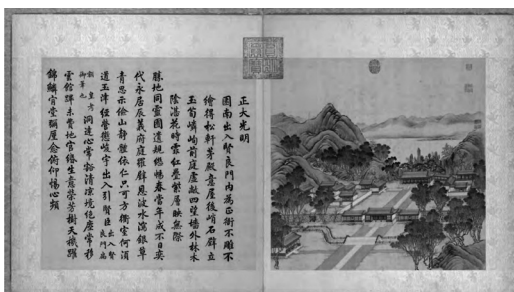 正大光明
園南出入賢良門內為正衙不雕不
繪得松軒茅殿意屋後峭石壁立
玉筍嶙峋前庭虛敞四望墻外林木
陰湛花時霏紅疊紫層映無際
勝地同靈囿遺規繼暢春當年成不日奕
代永居辰義府庭羅璧恩波水瀉銀草
青思示儉山靜體依仁只可方衢室何須
道玉津經營懋峻宇出入引賢臣出入賢良門
額皇考御筆也洞達心常豁清凉境絕塵常移
雲館蹕未費地官緡生意榮芳樹天機躍
錦鱗肯堂彌厪念俯仰惕心頻